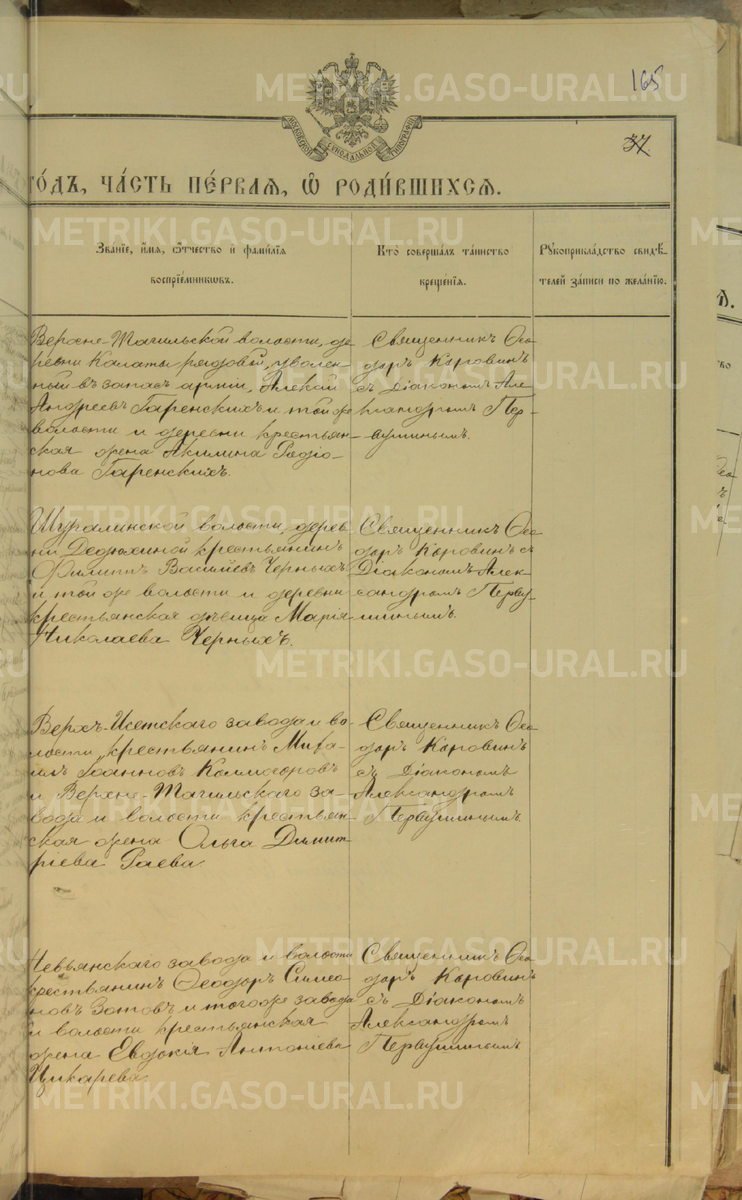 165
37
МОСКОВСКОЙ СѴНОДАЛЬНОЙ ТИПОГРАФІИ
ГО́ДЪ, ЧА́СТЬ ПЕ́РВАЯ, Ѡ҆ РОДИ́ВШИХСЯ.
Зва́нїе, и҆́мя, ѻ҆́тчество и҆ фами́лїя
воспрїе́мникѡвъ.
Кто̀ соверша́лъ та́инство
креще́нїя.
Рꙋкоприкла́дство свидѣ́-
телей за́писи по жела́нїю.
Верхне-Тагильской волости, де
ревни Калаты рядовой, уволен
ный въ запасъ арміи, Алексѣй
Андреевъ Гаренскихъ и той же
волости и деревни крестьян
ская жена Акилина Родіо-
нова Гаренскихъ.
Священникъ Ѳео
доръ Коровинъ
съ Діакономъ Але
ксандромъ Пер-
вушинымъ.
Шуралинской волости, дерев
ни крестьянинъ
Филиппъ Васильевъ Черныхъ
и той же волости и деревни
крестьянская дѣвица Марія
Николаева Черныхъ.
Священникъ Ѳео
доръ Коровинъ съ
Діакономъ Алек-
сандромъ Перву-
шинымъ.
Верхъ-Исетскаго завода и во-
лости, крестьянинъ Миха-
илъ Іоанновъ Колмогоровъ
и Верхне-Тагильскаго за-
вода и волости крестьян
ская жена Ольга Димит
ріева Раева.
Священникъ Ѳео
доръ Коровинъ
съ Діакономъ
Александромъ
Первушинымъ.
Невьянскаго завода и волости
крестьянинъ Ѳеодоръ Симео
новъ Зотовъ и того же завода
и волости крестьянская
жена Евдокія Антоніева
Цикарева.
Священникъ Ѳео
доръ Коровинъ
съ Діакономъ
Александромъ
Первушинымъ
METRIKI.GASO-URAL.RU
METRIKI.GASO-URAL.RU
METRIKI.GASO-URAL.RU
METRIKI.GASO-URAL.RU
METRIKI.GASO-URAL.RU
METRIKI.GASO-URAL.RU
METRIKI.GASO-URAL.RU
METRIKI.GASO-URAL.RU